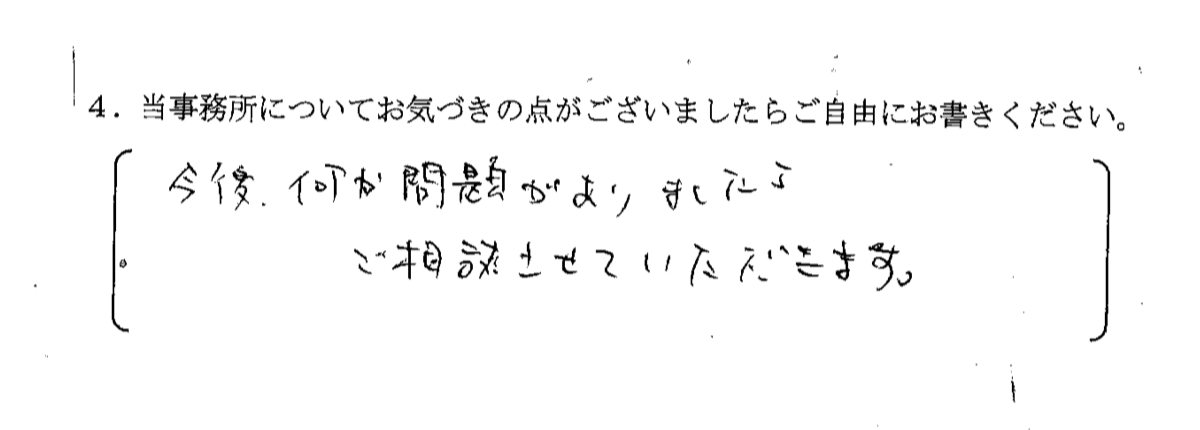 4．当事務所についてお気づきの点がございましたらご自由にお書きください。
今後、何か問題がありましたら
ご相談させていただきます。